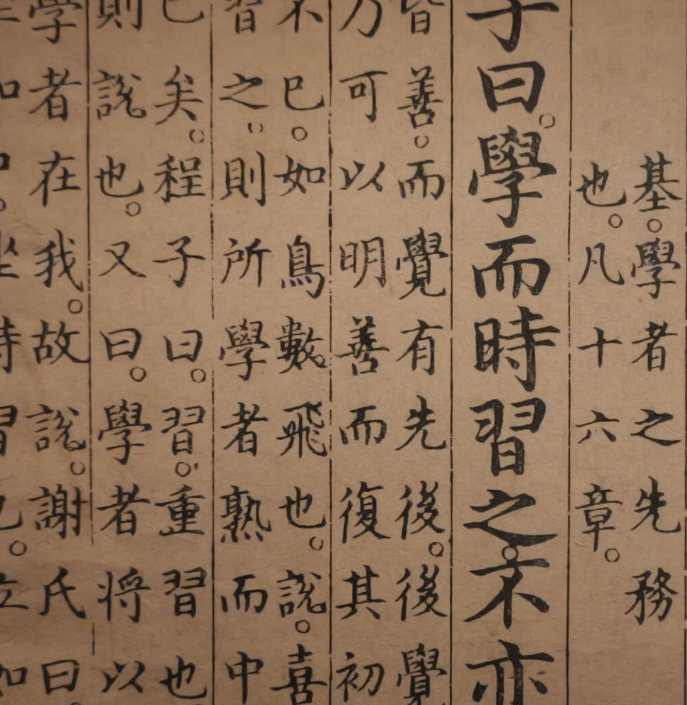 基。學者之先務
也。凡十六章。
子曰。學而時習之。不亦
皆善。而覺有先後。後覺
乃可以明善而復其初
不已。如鳥數飛也。說。喜
習之。則所學者熟而中
已矣。程子曰。習。重習也
則說也。又曰。學者將以
學者在我。故說。謝氏曰
坐時習也。立如